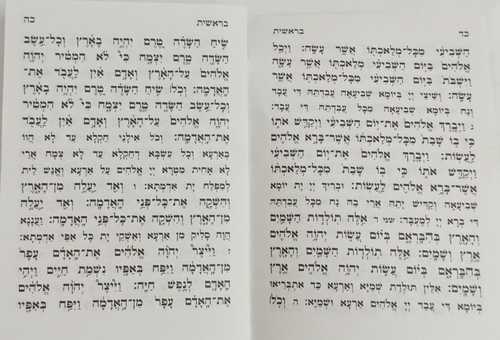 כד בראשית
הַשְּׁבִיעִי מִכָּל־מְלַאכְתּוֹ אֲשֶׁר עָשָׂה: וַיְכַל
אֱלֹהִים בַּיּוֹם הַשְּׁבִיעִי מְלַאכְתּוֹ אֲשֶׁר עָשָׂה
וַיִּשְׁבֹּת בַּיּוֹם הַשְּׁבִיעִי מִכָּל־מְלַאכְתּוֹ אֲשֶׁר
עָשָׂה: וְשֵׁיצִי יְיָ בְּיוֹמָא שְׁבִיעָאָה עֲבִדְתֵּהּ דִּי עֲבָד:
וְנָח בְּיוֹמָא שְׁבִיעָאָה מִכָּל עֲבִדְתֵּהּ דִּי עֲבָד:
ג וַיְבָרֶךְ אֱלֹהִים אֶת־יוֹם הַשְּׁבִיעִי וַיְקַדֵּשׁ אֹתוֹ
כִּי בוֹ שָׁבַת מִכָּל־מְלַאכְתּוֹ אֲשֶׁר־בָּרָא אֱלֹהִים
לַעֲשׂוֹת: וַיְבָרֶךְ אֱלֹהִים אֶת־יוֹם הַשְּׁבִיעִי
וַיְקַדֵּשׁ אֹתוֹ כִּי בוֹ שָׁבַת מִכָּל־מְלַאכְתּוֹ
אֲשֶׁר־בָּרָא אֱלֹהִים לַעֲשׂוֹת: וּבָרִיךְ יְיָ יָת יוֹמָא
שְׁבִיעָאָה וְקַדִּישׁ יָתֵהּ אֲרֵי בֵהּ נָח מִכָּל עֲבִדְתֵּהּ
דִּי בְרָא יְיָ לְמֶעְבָּד: שני ד אֵלֶּה תוֹלְדוֹת הַשָּׁמַיִם
וְהָאָרֶץ בְּהִבָּרְאָם בְּיוֹם עֲשׂוֹת יְהֹוָה אֱלֹהִים
אֶרֶץ וְשָׁמָיִם: אֵלֶּה תוֹלְדוֹת הַשָּׁמַיִם וְהָאָרֶץ
בְּהִבָּרְאָם בְּיוֹם עֲשׂוֹת יְהֹוָה אֱלֹהִים אֶרֶץ
וְשָׁמָיִם: אִלֵּין תּוּלְדַת שְׁמַיָּא וְאַרְעָא כַּד אִתְבְּרִיאוּ
בְּיוֹמָא דִּי עֲבַד יְיָ אֱלֹהִים אַרְעָא וּשְׁמַיָּא: ה וְכֹל
בראשית כה
שִׂיחַ הַשָּׂדֶה טֶרֶם יִהְיֶה בָאָרֶץ וְכָל־עֵשֶׂב
הַשָּׂדֶה טֶרֶם יִצְמָח כִּי לֹא הִמְטִיר יְהֹוָה
אֱלֹהִים עַל־הָאָרֶץ וְאָדָם אַיִן לַעֲבֹד אֶת־
הָאֲדָמָה: וְכֹל שִׂיחַ הַשָּׂדֶה טֶרֶם יִהְיֶה בָאָרֶץ
וְכָל־עֵשֶׂב הַשָּׂדֶה טֶרֶם יִצְמָח כִּי לֹא הִמְטִיר
יְהֹוָה אֱלֹהִים עַל־הָאָרֶץ וְאָדָם אַיִן לַעֲבֹד
אֶת־הָאֲדָמָה: וְכֹל אִילָנֵי חַקְלָא עַד לָא הֲווֹ
בְאַרְעָא וְכָל עִשְׂבָּא דְחַקְלָא עַד לָא צְמָח אֲרֵי
לָא אֲחִית מִטְרָא יְיָ אֱלֹהִים עַל אַרְעָא וֶאֱנָשׁ לֵית
לְמִפְלַח יָת אַדְמְתָא: ו וְאֵד יַעֲלֶה מִן־הָאָרֶץ
וְהִשְׁקָה אֶת־כָּל־פְּנֵי הָאֲדָמָה: וְאֵד יַעֲלֶה
מִן־הָאָרֶץ וְהִשְׁקָה אֶת־כָּל־פְּנֵי הָאֲדָמָה: וַעֲנָנָא
הֲוָה סָלֵיק מִן אַרְעָא וְאַשְׁקֵי יָת כָּל אַפֵּי אַדְמְתָא:
ז וַיִּיצֶר יְהֹוָה אֱלֹהִים אֶת־הָאָדָם עָפָר
מִן־הָאֲדָמָה וַיִּפַּח בְּאַפָּיו נִשְׁמַת חַיִּים וַיְהִי
הָאָדָם לְנֶפֶשׁ חַיָּה: וַיִּיצֶר יְהֹוָה אֱלֹהִים
אֶת־הָאָדָם עָפָר מִן־הָאֲדָמָה וַיִּפַּח בְּאַפָּיו